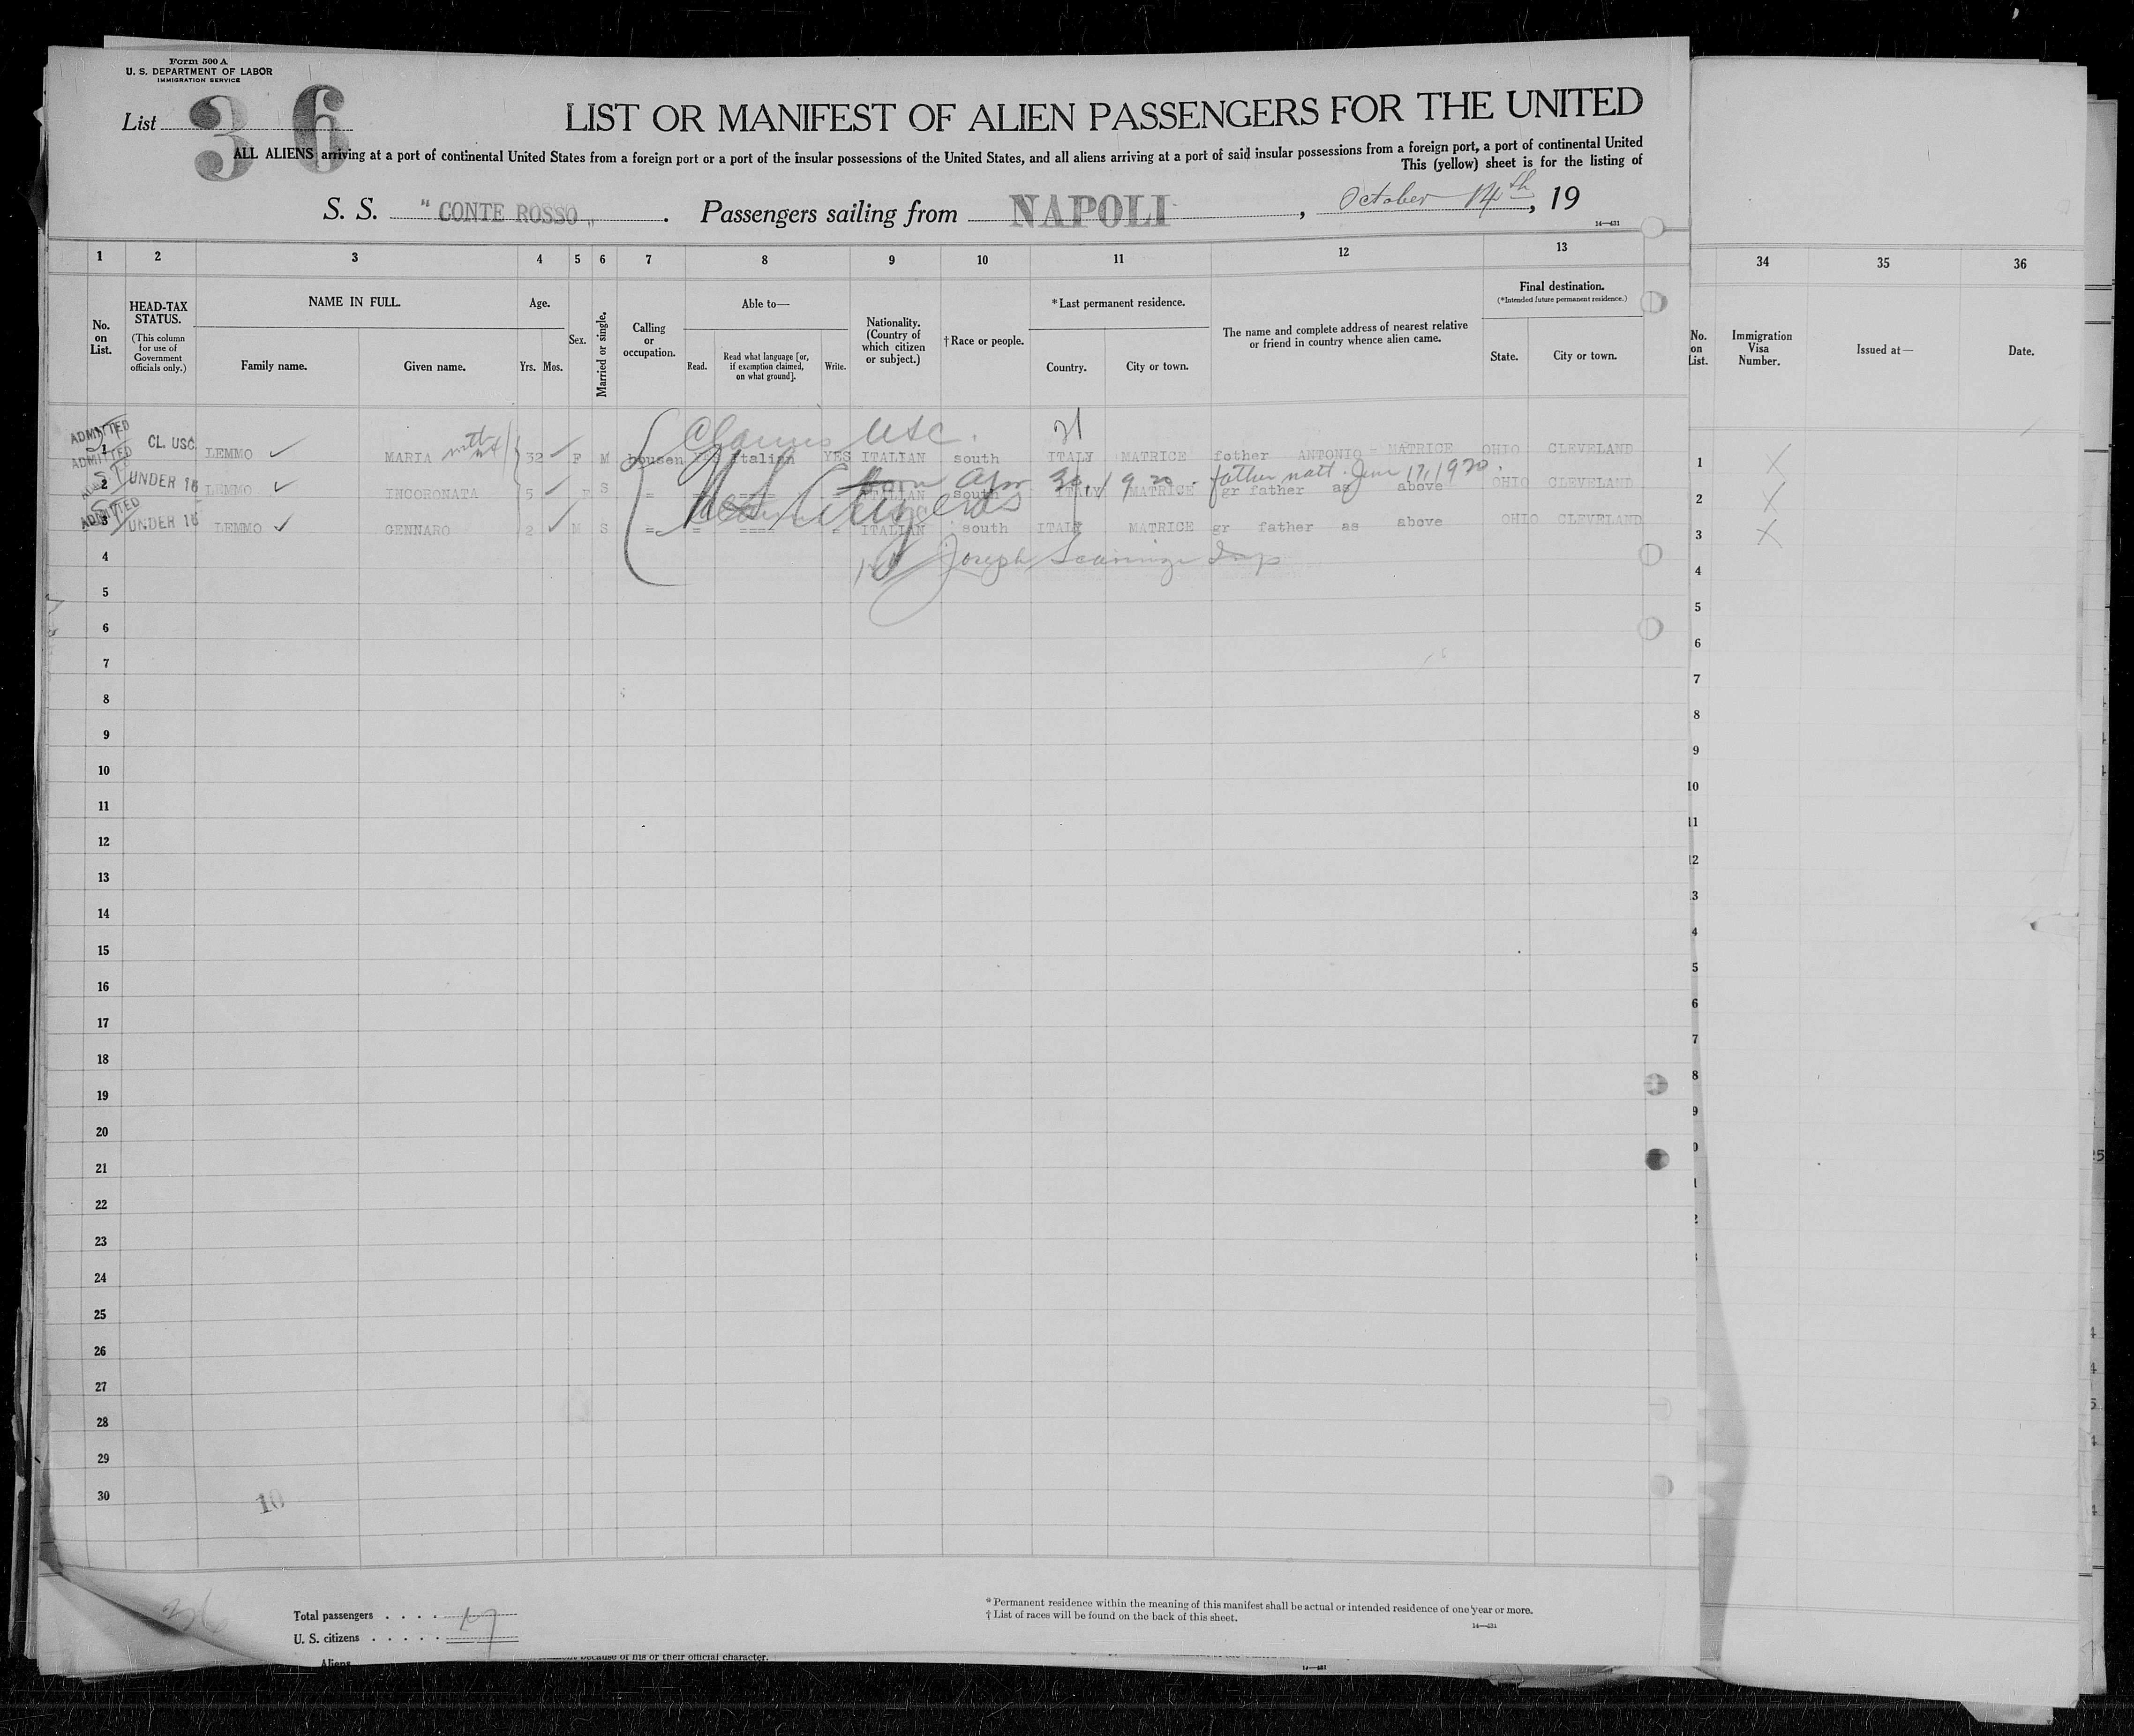 Form 500 A
U. S. DEPARTMENT OF LABOR
IMMIGRATION SERVICE
List 36
LIST OR MANIFEST OF ALIEN PASSENGERS FOR THE UNITED
ALL ALIENS arriving at a port of continental United States from a foreign port or a port of the insular possessions of the United States, and all aliens arriving at a port of said insular possessions from a foreign port, a port of continental United
This (yellow) sheet is for the listing of
S. S. "CONTE ROSSO". Passengers sailing from NAPOLI, October 14th, 19
14—431
1 2 3 4 5 6 7 8 9 10 11 12 13 34 35 36
No. on List.
HEAD-TAX STATUS.
(This column for use of Government officials only.)
NAME IN FULL.
Family name.
Given name.
Age.
Yrs. Mos.
Sex.
Married or single.
Calling or occupation.
Able to—
Read.
Read what language [or, if exemption claimed, on what ground].
Write.
Nationality. (Country of which citizen or subject.)
†Race or people.
*Last permanent residence.
Country.
City or town.
The name and complete address of nearest relative or friend in country whence alien came.
Final destination.
(*Intended future permanent residence.)
State.
City or town.
No. on List.
Immigration Visa Number.
Issued at—
Date.
Claims USC.
ADMITTED 1 CL. USC LEMMO MARIA 32 F M housen Italian YES ITALIAN south ITALY MATRICE father ANTONIO - MATRICE OHIO CLEVELAND 1 X
born Apr 30, 1920. father natl. June 17, 1920.
ADMITTED 2 UNDER 16 LEMMO INCORONATA 5 F S = = ==== = ITALIAN south ITALY MATRICE gr father as above OHIO CLEVELAND 2 X
US Citizens
ADMITTED 3 UNDER 16 LEMMO GENNARO 2 M S = = ==== = ITALIAN south ITALY MATRICE gr father as above OHIO CLEVELAND 3 X
Joseph Insp
4 4
5 5
6 6
7 7
8 8
9 9
10 10
11 11
12 12
13 3
14 4
15 5
16 6
17 7
18 8
19 9
20 0
21 1
22 2
23
24
25
26
27
28
29
30
10
36
Total passengers . . . .
U. S. citizens . . . . .
Aliens
* Permanent residence within the meaning of this manifest shall be actual or intended residence of one year or more.
† List of races will be found on the back of this sheet.
14—431
because of his or their official character.
14—431